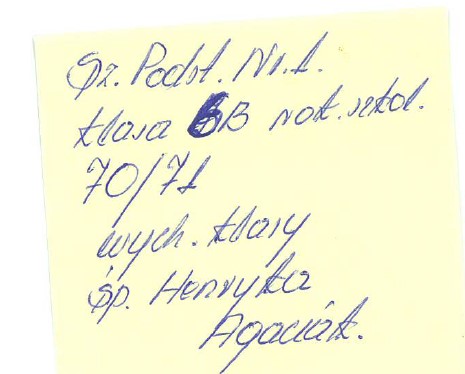 Sz. Podst. Nr. 1.
klasa 6B rok. szkol.
70/71
wych. klasy
śp. Henryka
Agaciák.